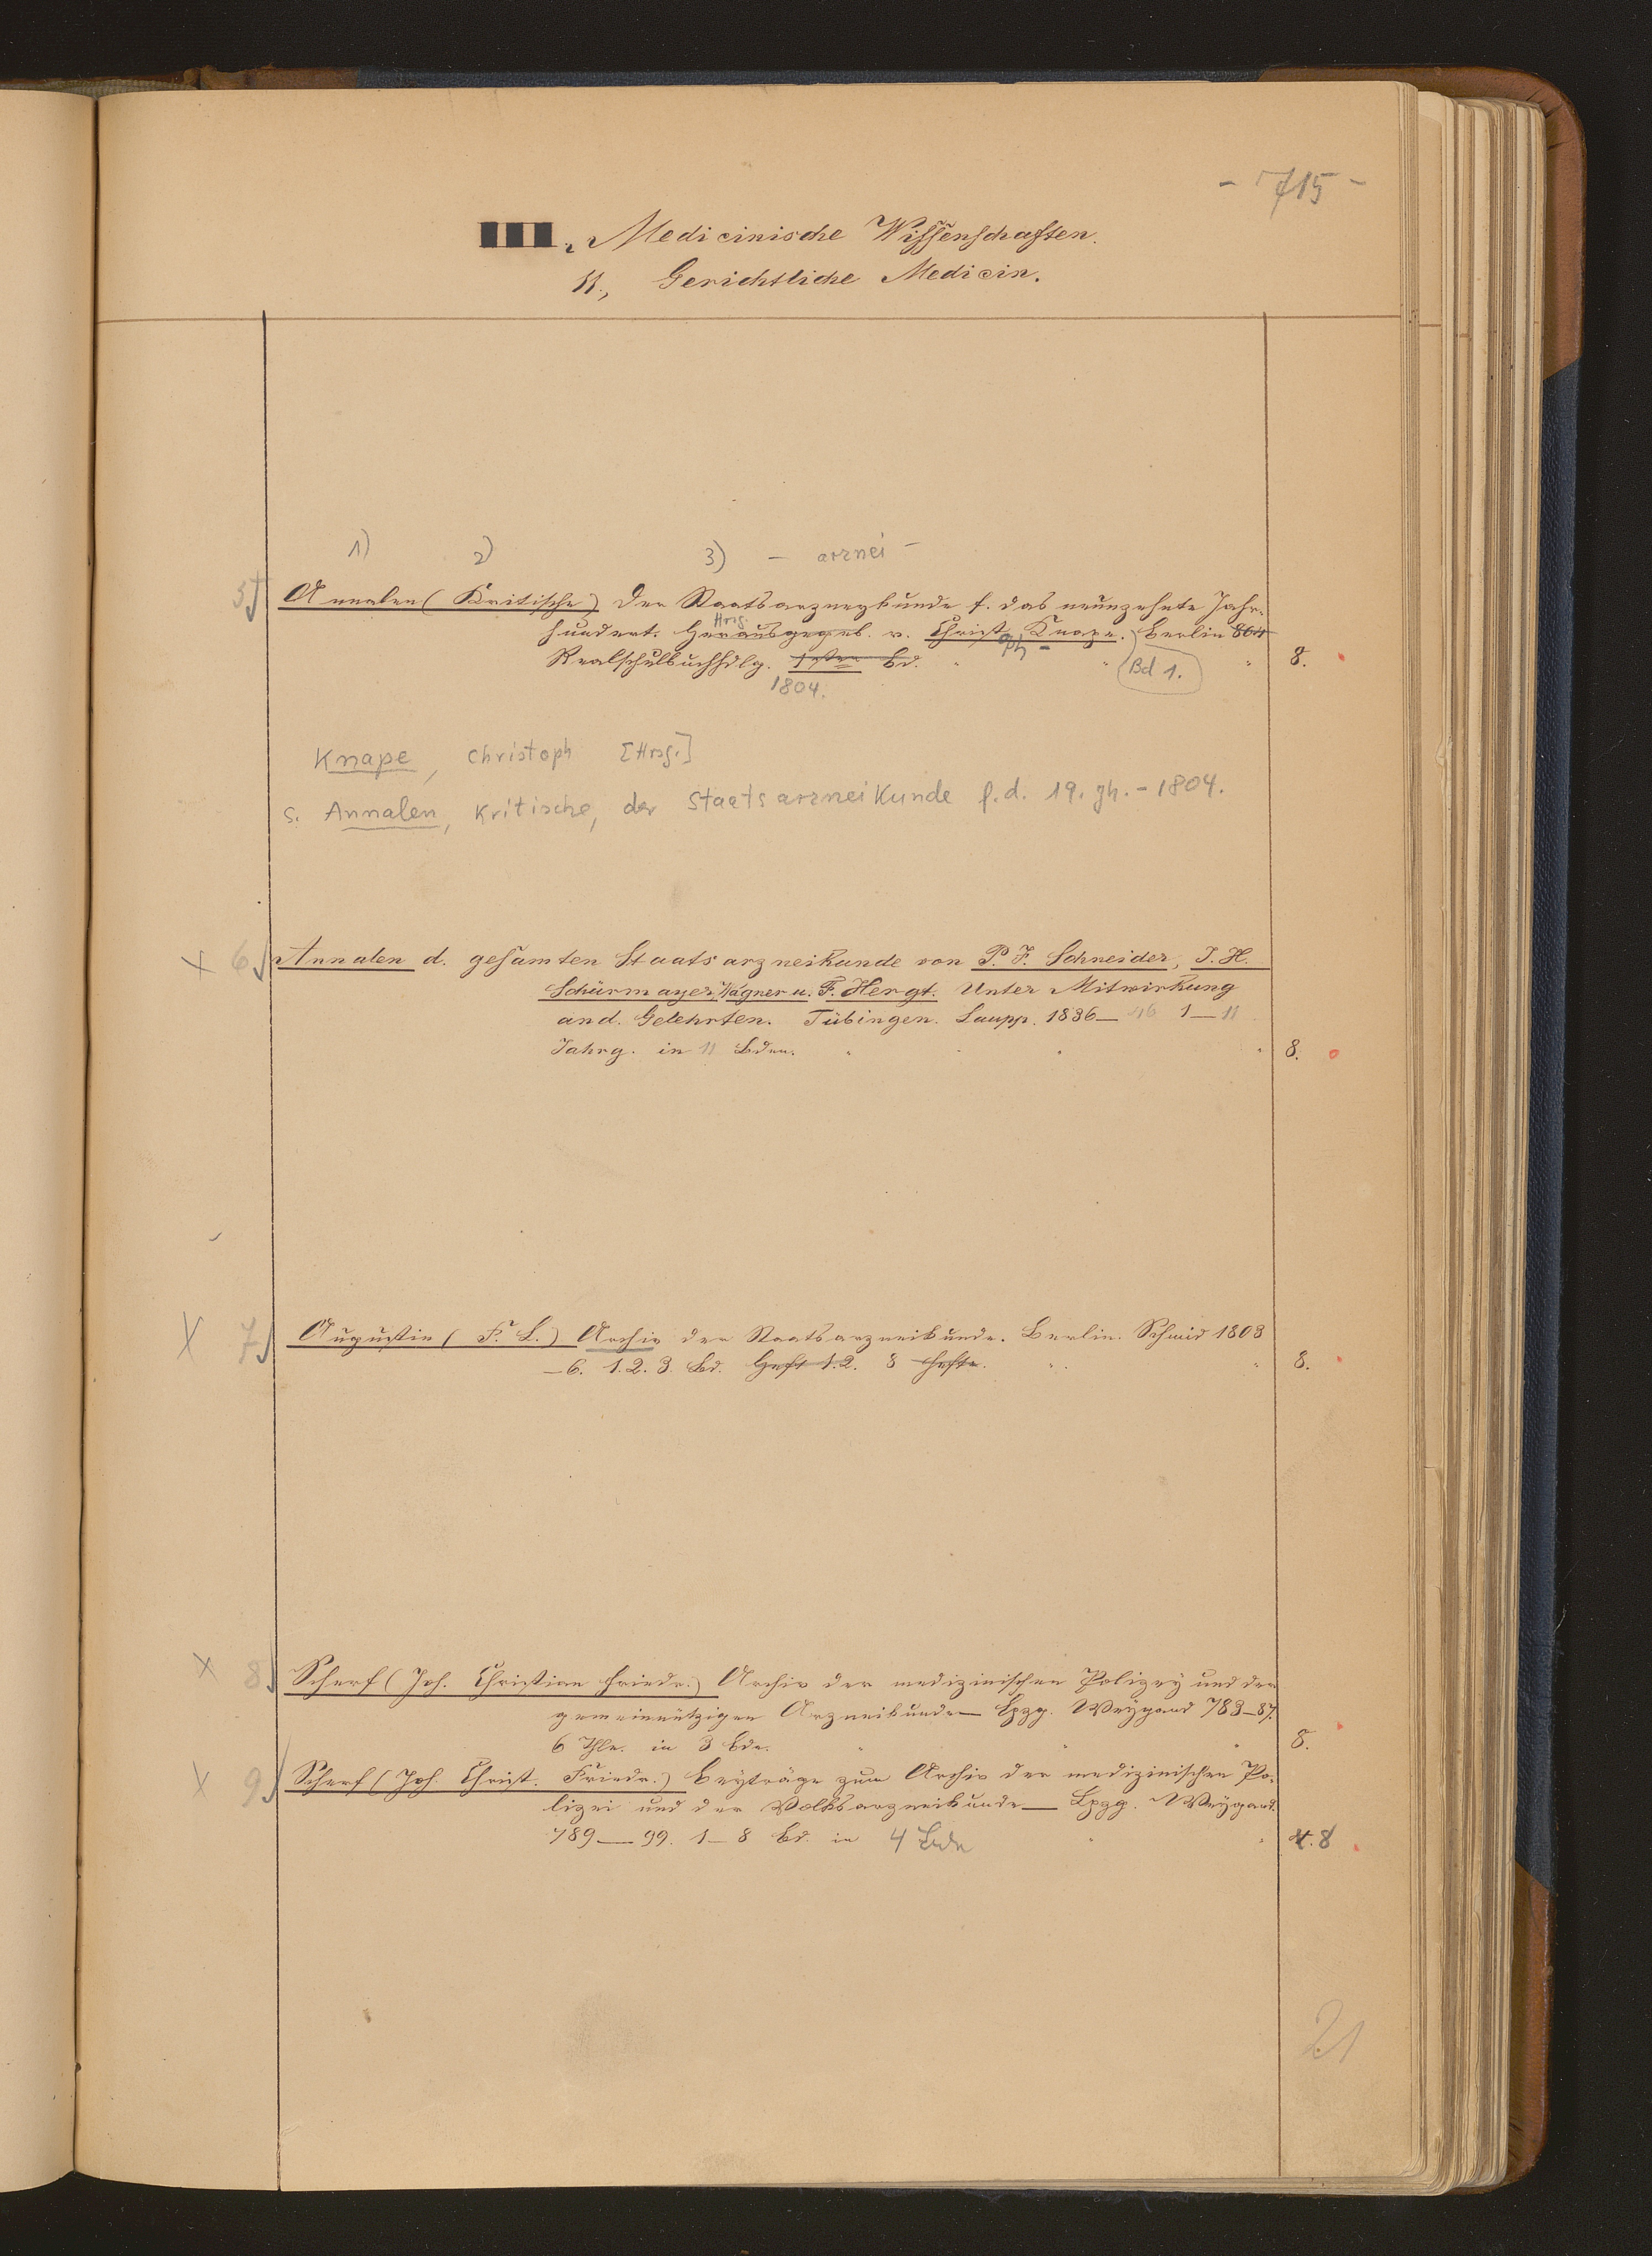 - 715 -
III., Medicinische Wissenschaften.
11., Gerichtliche Medicin.
1) 2) 3) - arznei -
5) Annalen (Kritische) der Staatsarzneykunde f. das neunzehnte Jahr-
Hrsg.
hundert. Herausgegeb. v. Christ. Knape. Berlin 804
oph -
Realschulbuchhdlg. 1ster Bd. Bd 1. 8.
1804.
Knape, Christoph [Hrsg.]
s. Annalen, Kritische, der Staatsarzneikunde f. d. 19. Jh. - 1804.
x 6) Annalen d. gesamten Staatsarzneikunde von P. J. Schneider, J. H.
Schürmayer, Wagner u. F. Hergt. Unter Mitwirkung
and. Gelehrten. Tübingen. Laupp. 1836— 46 1—11
Jahrg. in 11 Bden. 8.
x 7) Augustin (F. L.) Archiv der Staatsarzneikunde. Berlin. Schmid 1803
—6. 1. 2. 3. Bd. Heft 1.2. 8 Hefte. 8.
x 8) Scherf (Joh. Christian Friedr.) Archiv der medizinischen Polizey und der
gemeinnützigen Arzneikunde— Lpzg. Weygand 783—87.
6 Thle. in 3 Bde. 8.
x 9) Scherf (Joh. Christ. Friedr.) Beyträge zum Archiv der medizinischen Po-
lizei und der Volksarzneikunde— Lpzg. Weygand.
789—99. 1—8 Bd. in 4 Bde 8
21